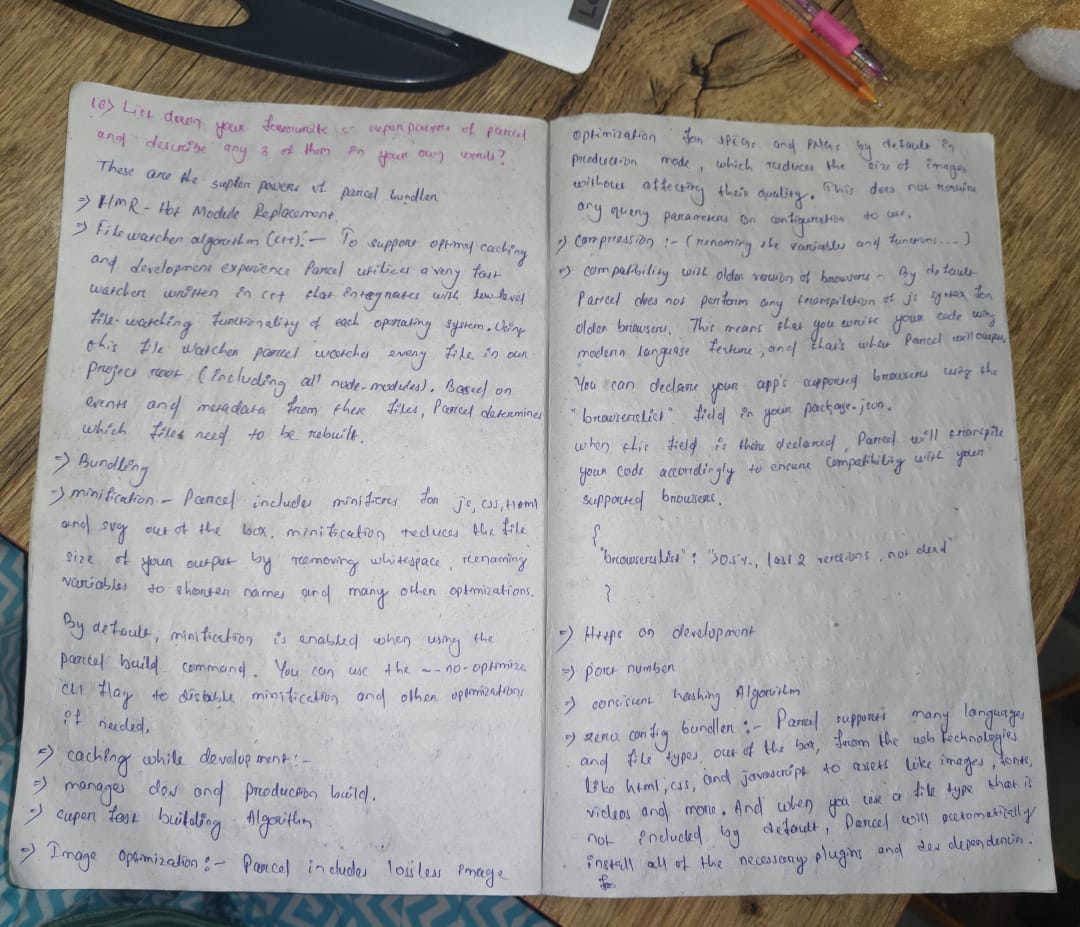 10) List down your favourite 5 superpowers of parcel
and describe any 3 of them in your own words?
These are the supper powers of parcel bundler
=> HMR - Hot Module Replacement.
=> File watcher algorithm (c++) :- To support optimal caching
and development experience Parcel utilizes a very fast
watcher written in c++ that integrates with low-level
file-watching functionality of each operating system. Using
this file watcher parcel watches every file in our
Project root (including all node-modules). Based on
events and metadata from these files, Parcel determines
which files need to be rebuilt.
=> Bundling
=> minification - Parcel includes minifiers for js, css, html
and svg out of the box. minification reduces the file
size of your output by removing whitespace, renaming
variables to shorten names and many other optimizations.
By default, minification is enabled when using the
parcel build command. You can use the --no-optimize
cli flag to disbable minification and other optimizations
if needed.
=> caching while development :-
=> manages dev and production build.
=> super fast building Algorithm
=> Image Optimization :- Parcel includes lossless image
optimization for JPEGs and PNGs by default in
production mode, which reduces the size of images
without affecting their quality. This does not require
any query parameters or configuration to use.
=> Compression :- (renaming the variables and functions....)
=> compatibility with older version of browsers - By default
Parcel does not perform any transpilation of js syntax for
older browsers. This means that you write your code using
modern language feature, and that's what Parcel will output.
You can declare your app's supported browsers using the
"browserslist" field in your package.json.
when this field is there declared, Parcel will transpile
your code accordingly to ensure compatibility with your
supported browsers.
{
"browserslist" : ">0.5%, last 2 versions, not dead"
}
=> Https on development
=> port number
=> consisent hashing Algorithm
=> zero config bundler :- Parcel supports many languages
and file types out of the box, from the web technologies
like html, css, and javascript to assets like images, fonts,
videos and more. And when you use a file type that is
not included by default, Parcel will automatically
install all of the necessary plugins and dev dependencies.